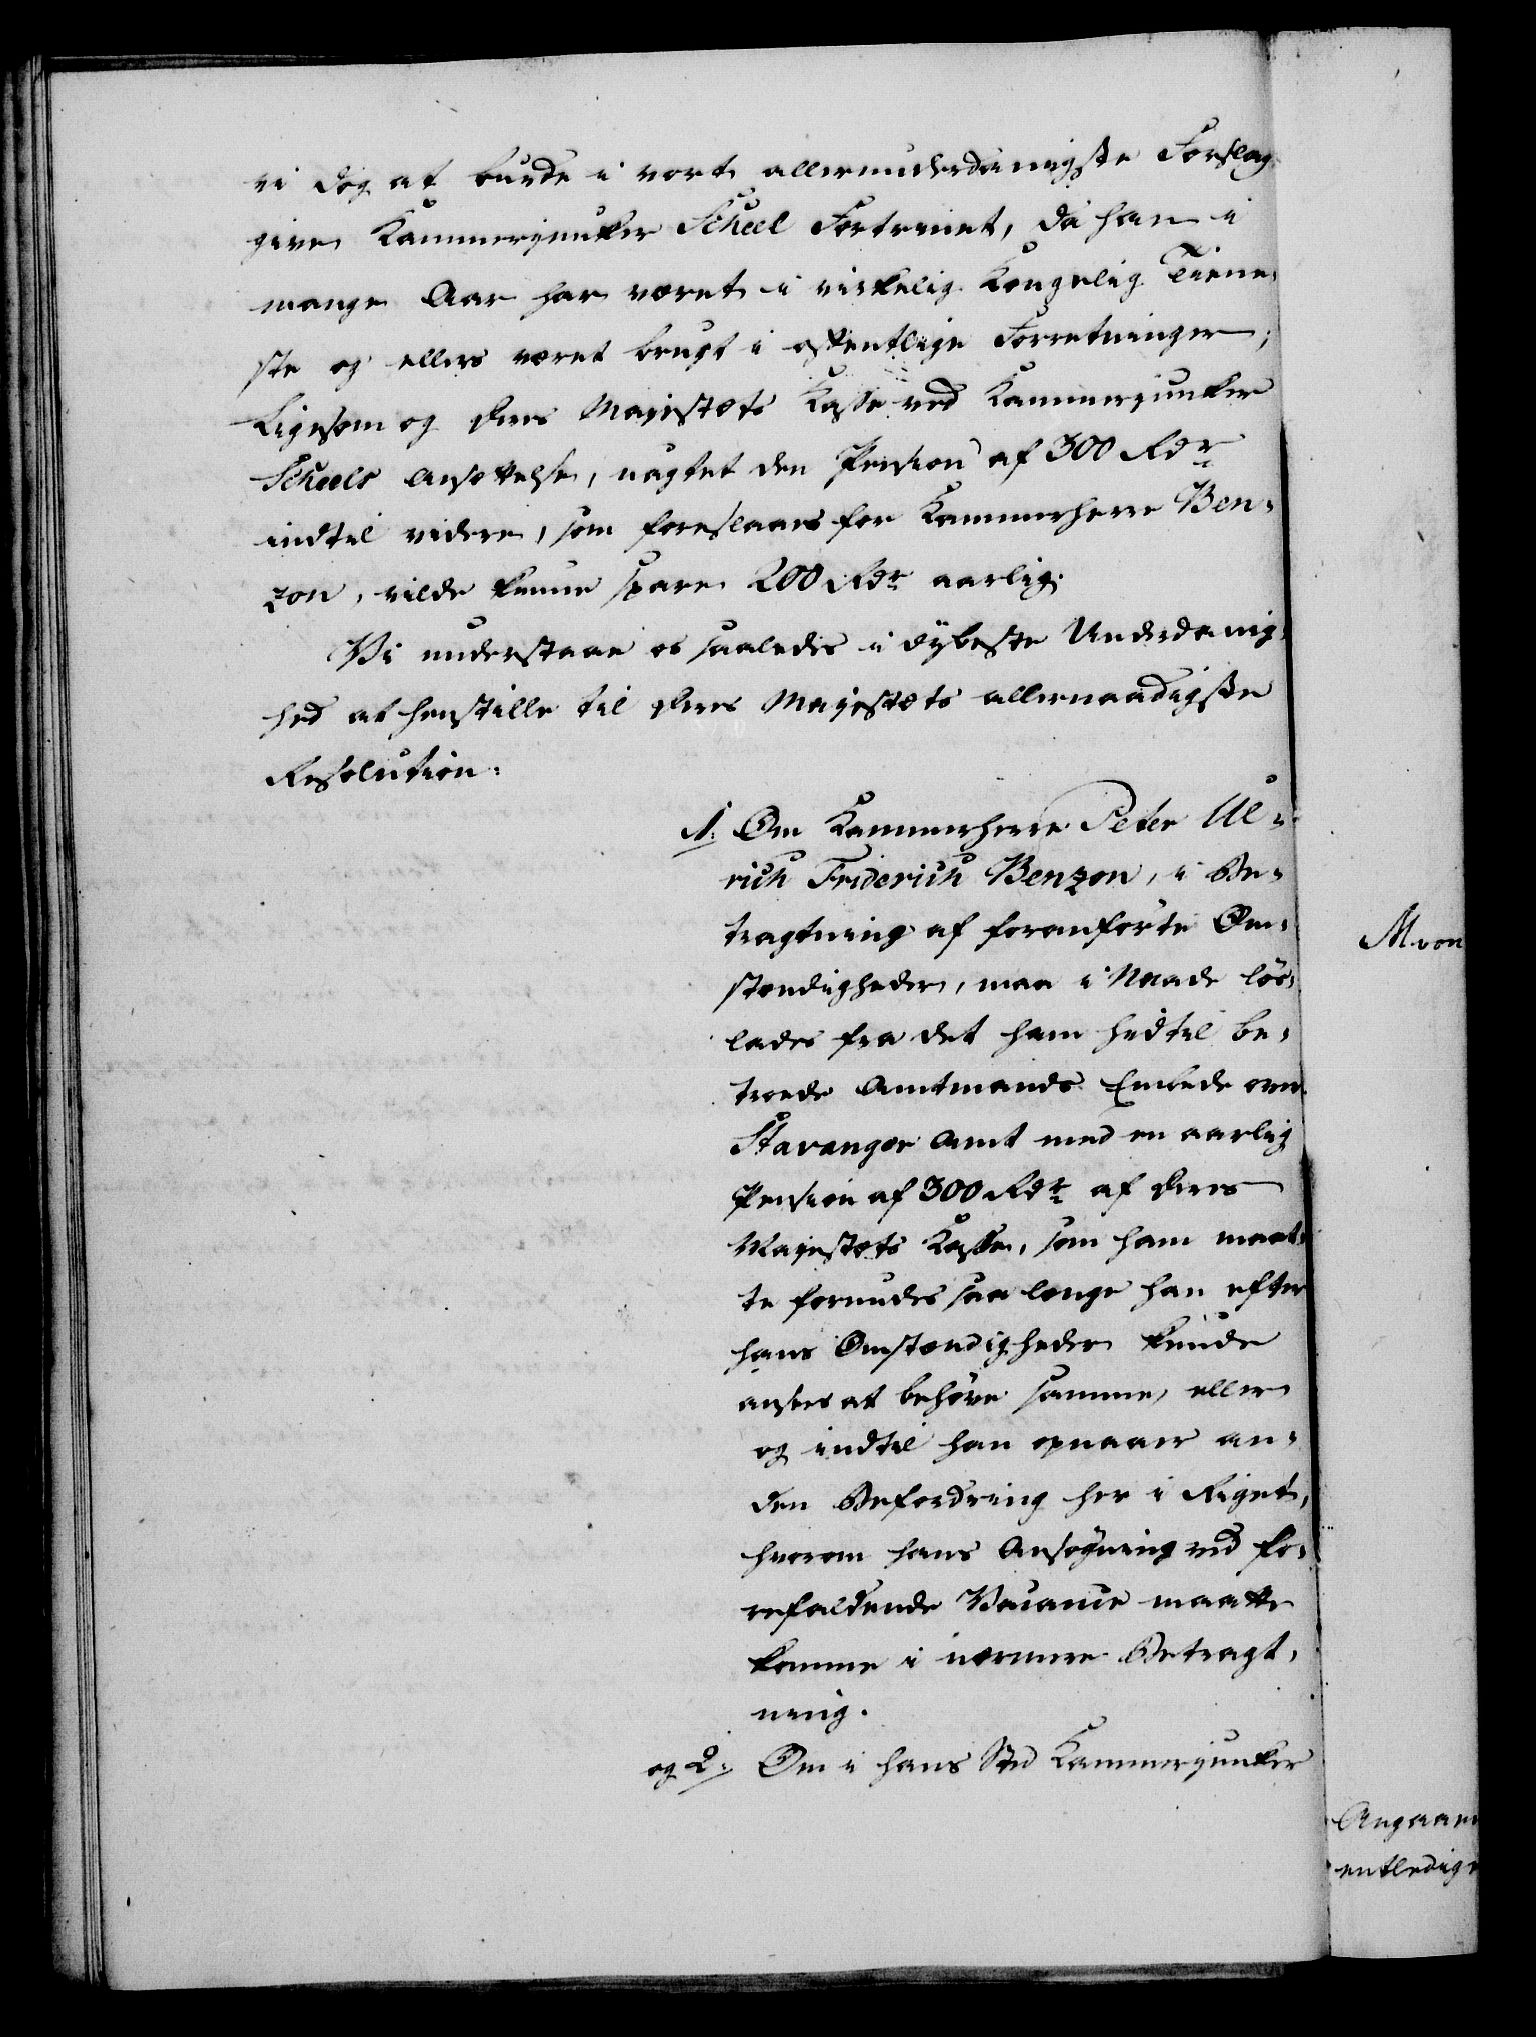 vi dog at burde i vort allerunderdanigste Forslag
give Kammerjunker Scheel Fortrinet, da han i
mange Aar har været i virkelig Kongelig Tiene-
ste og ellers været brugt i offentlige Forretninger;
Ligesom og Deres Majestæts Kasse ved Kammerjunker
Scheels Ansættelse, uagtet den Pension af 300 Rdr
indtil videre, som foreslaaes for Kammerherre Ben-
zon, vilde kunne spare 200 Rdr aarlig.
Vi understaae os saaledes i dybeste Underdanig-
hed at henstille til Deres Majestæts allernaadigste
Resolution:
1. Om Kammerherre Peter Ul-
rich Friderich Benzon, i Be-
tragtning af foranførte Om-
stændigheder, maa i Naade løs-
lades fra det ham hidtil be-
troede Amtmands Embede over
Stavanger Amt med en aarlig
Pension af 300 Rdr af Deres
Majestæts Kasse, som ham maat-
te forundes saa længe han efter
hans Omstændigheder kunde
ansees at behøve samme, eller
og indtil han opnaaer an-
den Befordring her i Riget,
hvorom hans Ansøgning ved fo-
refaldende Vacance maatte
komme i nærmere Betragt-
ning.
og 2. Om i hans Sted Kammerjunker